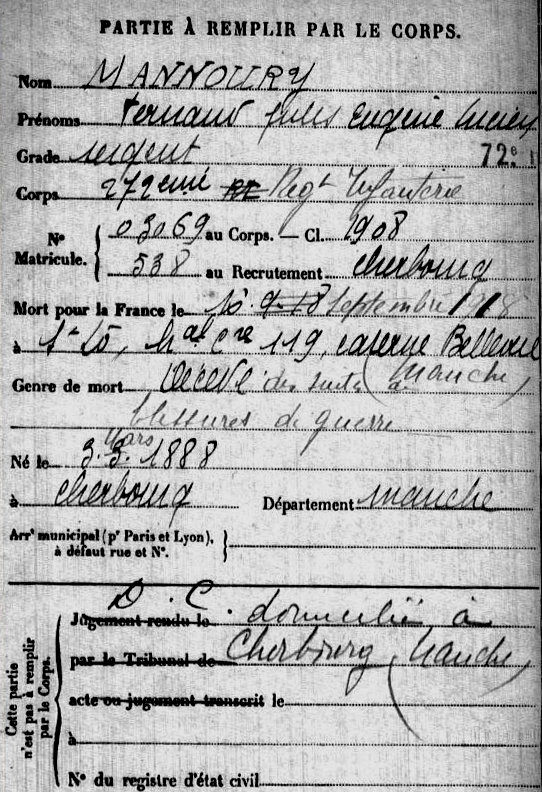 PARTIE À REMPLIR PAR LE CORPS.
Nom MANNOURY
Prénoms Fernand Jules Eugène Lucien
Grade sergent 72e
Corps 272eme RI Regt Infanterie
Nº Matricule. 03069 au Corps. — Cl. 1908
538 au Recrutement Cherbourg
Mort pour la France le 10. 9-18 Septembre 1918
à St Lô, hal cre 119, caserne Bellevue
(Manche)
Genre de mort Décédé des suites de
blessures de guerre
Mars
Né le 3.3.1888
à Cherbourg Département manche
Arrt municipal (pr Paris et Lyon),
à défaut rue et Nº.
D. C.
Jugement rendu le domicilié à
par le Tribunal de Cherbourg (Manche)
acte ou jugement transcrit le
à
Nº du registre d'état civil
Cette partie
n'est pas à remplir
par le Corps.